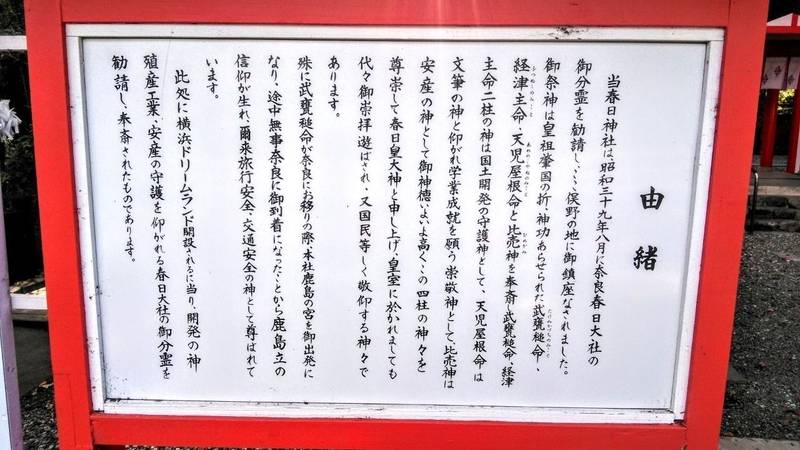 由緒
当春日神社は、昭和三十九年八月に奈良春日大社の
御分霊を勧請し、ここ俣野の地に御鎮座なされました。
御祭神は皇祖肇国の折、神功あらせられた武甕槌命、
経津主命・天児屋根命と比売神を奉斎、武甕槌命、経津
主命二柱の神は国土開発の守護神として、天児屋根命は
文筆の神と仰がれ学業成就を願う崇敬神として、比売神は
安産の神として御神徳いよいよ高く、この四柱の神々を
尊崇して春日皇大神と申し上げ、皇室に於かれましても
代々御崇拝遊ばされ、又国民等しく敬仰する神々で
あります。
殊に武甕槌命が奈良にお移りの際、本社鹿島の宮を御出発に
なり、途中無事奈良に御到着になったことから鹿島立の
信仰が生れ、爾来旅行安全、交通安全の神として尊ばれて
います。
此処に横浜ドリームランド開設されるに当り、開発の神
殖産工業、安産の守護を仰がれる春日大社の御分霊を
勧請し、奉斎されたものであります。